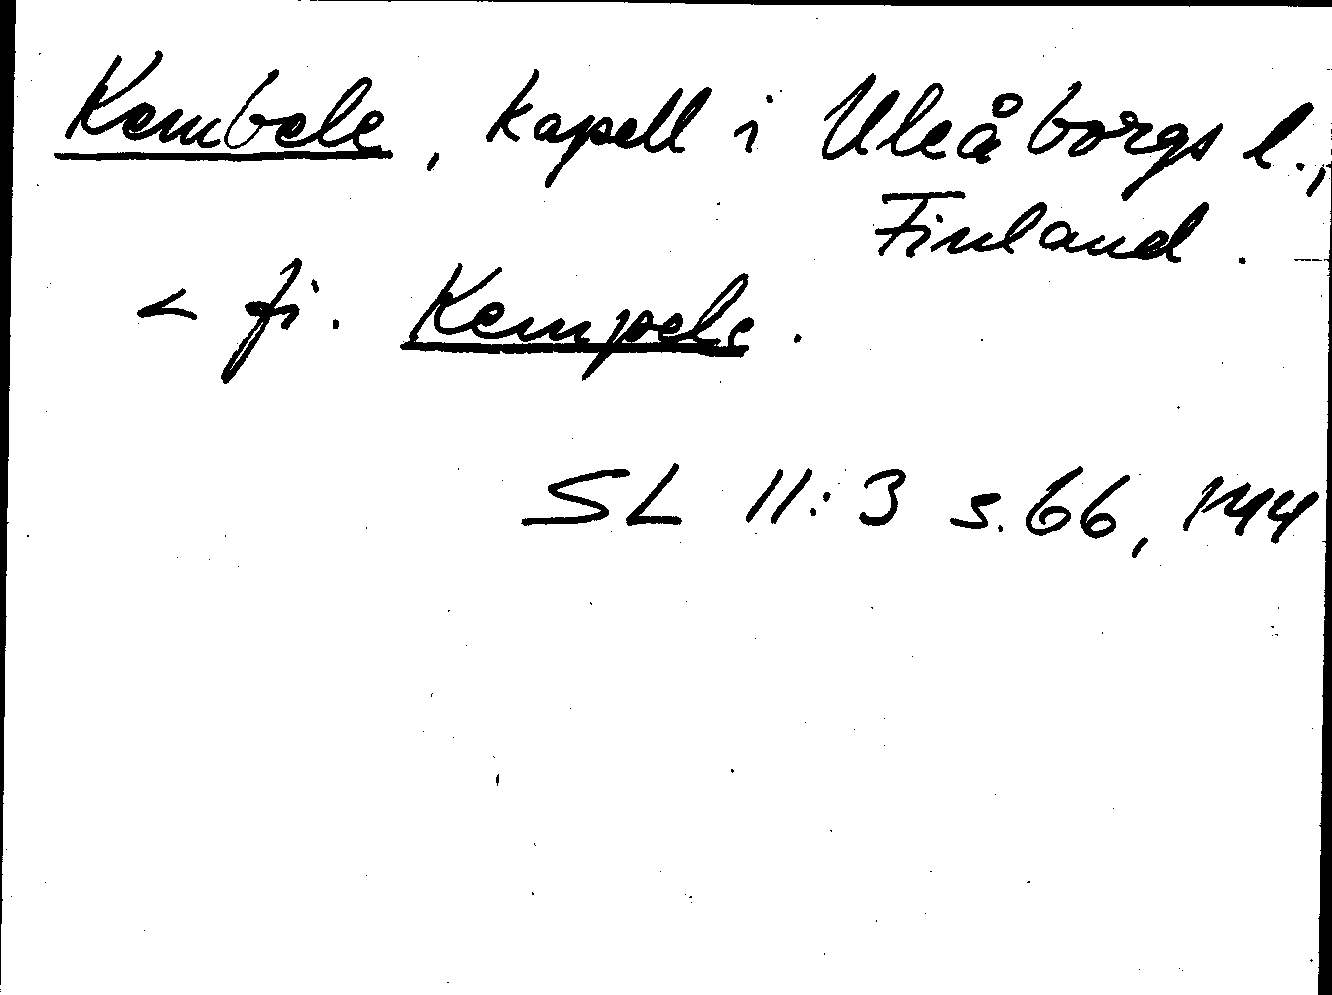 Kembele, kapell i Uleåborgs l.,
Finland.
< fi. Kempele.
SL 11:3 s. 66, 144